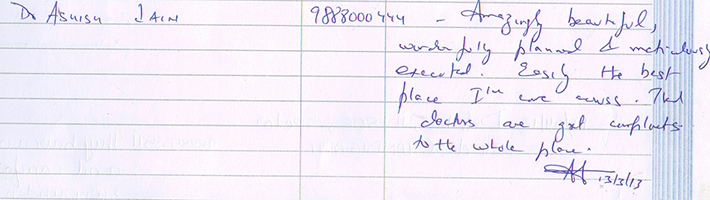 Dr ASHISH JAIN 9888000444 - Amazingly beautiful,
wonderfully planned & meticulously
executed. Easily the best
place I've come across. The
doctors are great compliments
to the whole place.
13/3/13